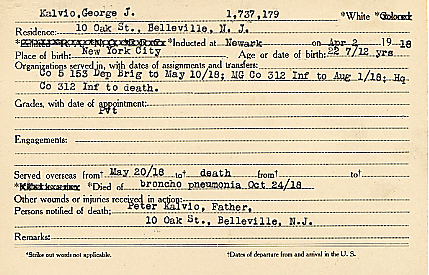 Kalvio, George J. 1,737,179 *White *Colored
Residence: 10 Oak St., Belleville, N. J.
*Inducted at Newark on Apr 2 1918
Place of birth: New York City Age or date of birth: 22 7/12 yrs
Organizations served in, with dates of assignments and transfers:
Co 5 153 Dep Brig to May 10/18; MG Co 312 Inf to Aug 1/18; Hq
Co 312 Inf to death.
Grades, with date of appointment:
Pvt
Engagements:
Served overseas from† May 20/18 to† death from† to†
*Died of broncho pneumonia Oct 24/18
Other wounds or injuries received in action:
Persons notified of death: Peter Kalvio, Father,
10 Oak St., Belleville, N.J.
Remarks:
*Strike out words not applicable. †Dates of departure from and arrival in the U. S.